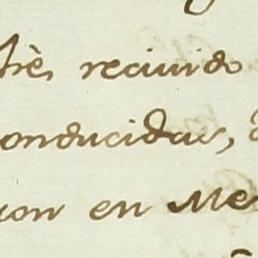 trè, reciuido
conducidas,
uon en Me